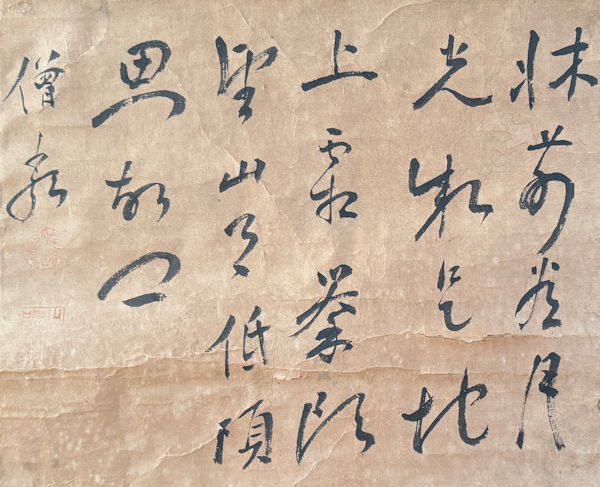 牀前看月
光疑是地
上霜擧頭
望山月低頭
思故郷
僧